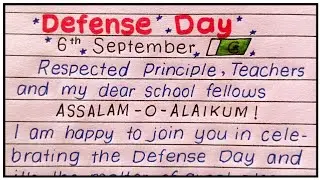 Defense Day
6th September
Respected Principle, Teachers
and my dear school fellows
ASSALAM-O-ALAIKUM!
I am happy to join you in cele-
brating the Defense Day and